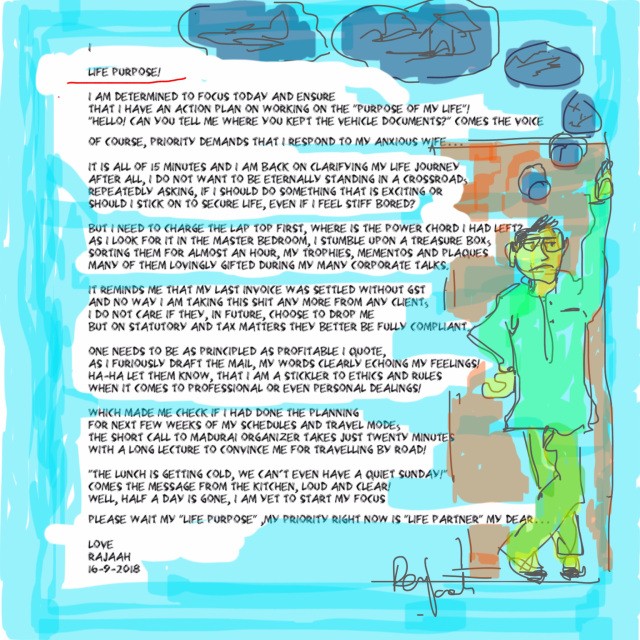 LIFE PURPOSE!
I AM DETERMINED TO FOCUS TODAY AND ENSURE
THAT I HAVE AN ACTION PLAN ON WORKING ON THE "PURPOSE OF MY LIFE"!
"HELLO! CAN YOU TELL ME WHERE YOU KEPT THE VEHICLE DOCUMENTS?" COMES THE VOICE
OF COURSE, PRIORITY DEMANDS THAT I RESPOND TO MY ANXIOUS WIFE....
IT IS ALL OF 15 MINUTES AND I AM BACK ON CLARIFYING MY LIFE JOURNEY
AFTER ALL, I DO NOT WANT TO BE ETERNALLY STANDING IN A CROSSROAD,
REPEATEDLY ASKING, IF I SHOULD DO SOMETHING THAT IS EXCITING OR
SHOULD I STICK ON TO SECURE LIFE, EVEN IF I FEEL STIFF BORED?
BUT I NEED TO CHARGE THE LAP TOP FIRST, WHERE IS THE POWER CHORD I HAD LEFT?
AS I LOOK FOR IT IN THE MASTER BEDROOM, I STUMBLE UPON A TREASURE BOX,
SORTING THEM FOR ALMOST AN HOUR, MY TROPHIES, MEMENTOS AND PLAQUES
MANY OF THEM LOVINGLY GIFTED DURING MY MANY CORPORATE TALKS.
IT REMINDS ME THAT MY LAST INVOICE WAS SETTLED WITHOUT GST
AND NO WAY I AM TAKING THIS SHIT ANY MORE FROM ANY CLIENT,
I DO NOT CARE IF THEY, IN FUTURE, CHOOSE TO DROP ME
BUT ON STATUTORY AND TAX MATTERS THEY BETTER BE FULLY COMPLIANT.
ONE NEEDS TO BE AS PRINCIPLED AS PROFITABLE I QUOTE,
AS I FURIOUSLY DRAFT THE MAIL, MY WORDS CLEARLY ECHOING MY FEELINGS!
HA-HA LET THEM KNOW, THAT I AM A STICKLER TO ETHICS AND RULES
WHEN IT COMES TO PROFESSIONAL OR EVEN PERSONAL DEALINGS!
WHICH MADE ME CHECK IF I HAD DONE THE PLANNING
FOR NEXT FEW WEEKS OF MY SCHEDULES AND TRAVEL MODE,
THE SHORT CALL TO MADURAI ORGANIZER TAKES JUST TWENTY MINUTES
WITH A LONG LECTURE TO CONVINCE ME FOR TRAVELLING BY ROAD!
"THE LUNCH IS GETTING COLD, WE CAN'T EVEN HAVE A QUIET SUNDAY!"
COMES THE MESSAGE FROM THE KITCHEN, LOUD AND CLEAR!
WELL, HALF A DAY IS GONE, I AM YET TO START MY FOCUS
PLEASE WAIT MY "LIFE PURPOSE" ,MY PRIORITY RIGHT NOW IS "LIFE PARTNER" MY DEAR...
LOVE
RAJAAH
16-9-2018